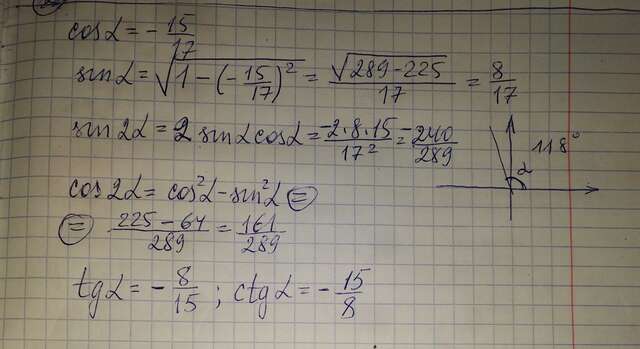 cosα = - 15/17
sinα = √(1 - (-15/17)²) = √(289-225)/17 = 8/17
sin2α = 2 sinαcosα = -2·8·15/17² = -240/289
118°
α
cos2α = cos²α - sin²α =
= 225-64/289 = 161/289
tgα = - 8/15 ; ctgα = - 15/8